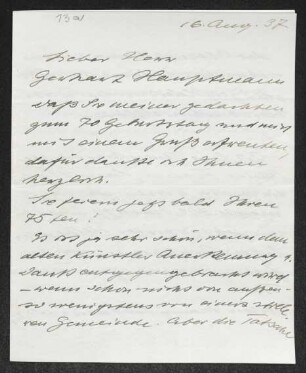 13a)
16. Aug. 37
Lieber Herr
Gerhart Hauptmann
daß Sie meiner gedachten
zum 70 Geburtstag und mich
mit einem Gruß erfreuten,
dafür danke ich Ihnen
herzlich.
Sie feiern jetzt bald Ihren
75 ten!
Es ist ja sehr schön, wenn dem
alten Künstler Anerkennung u.
Dank entgegengebracht wird
– wenn schon nicht von außen –
so wenigstens von einer stille-
ren Gemeinde. Aber die Tatsache